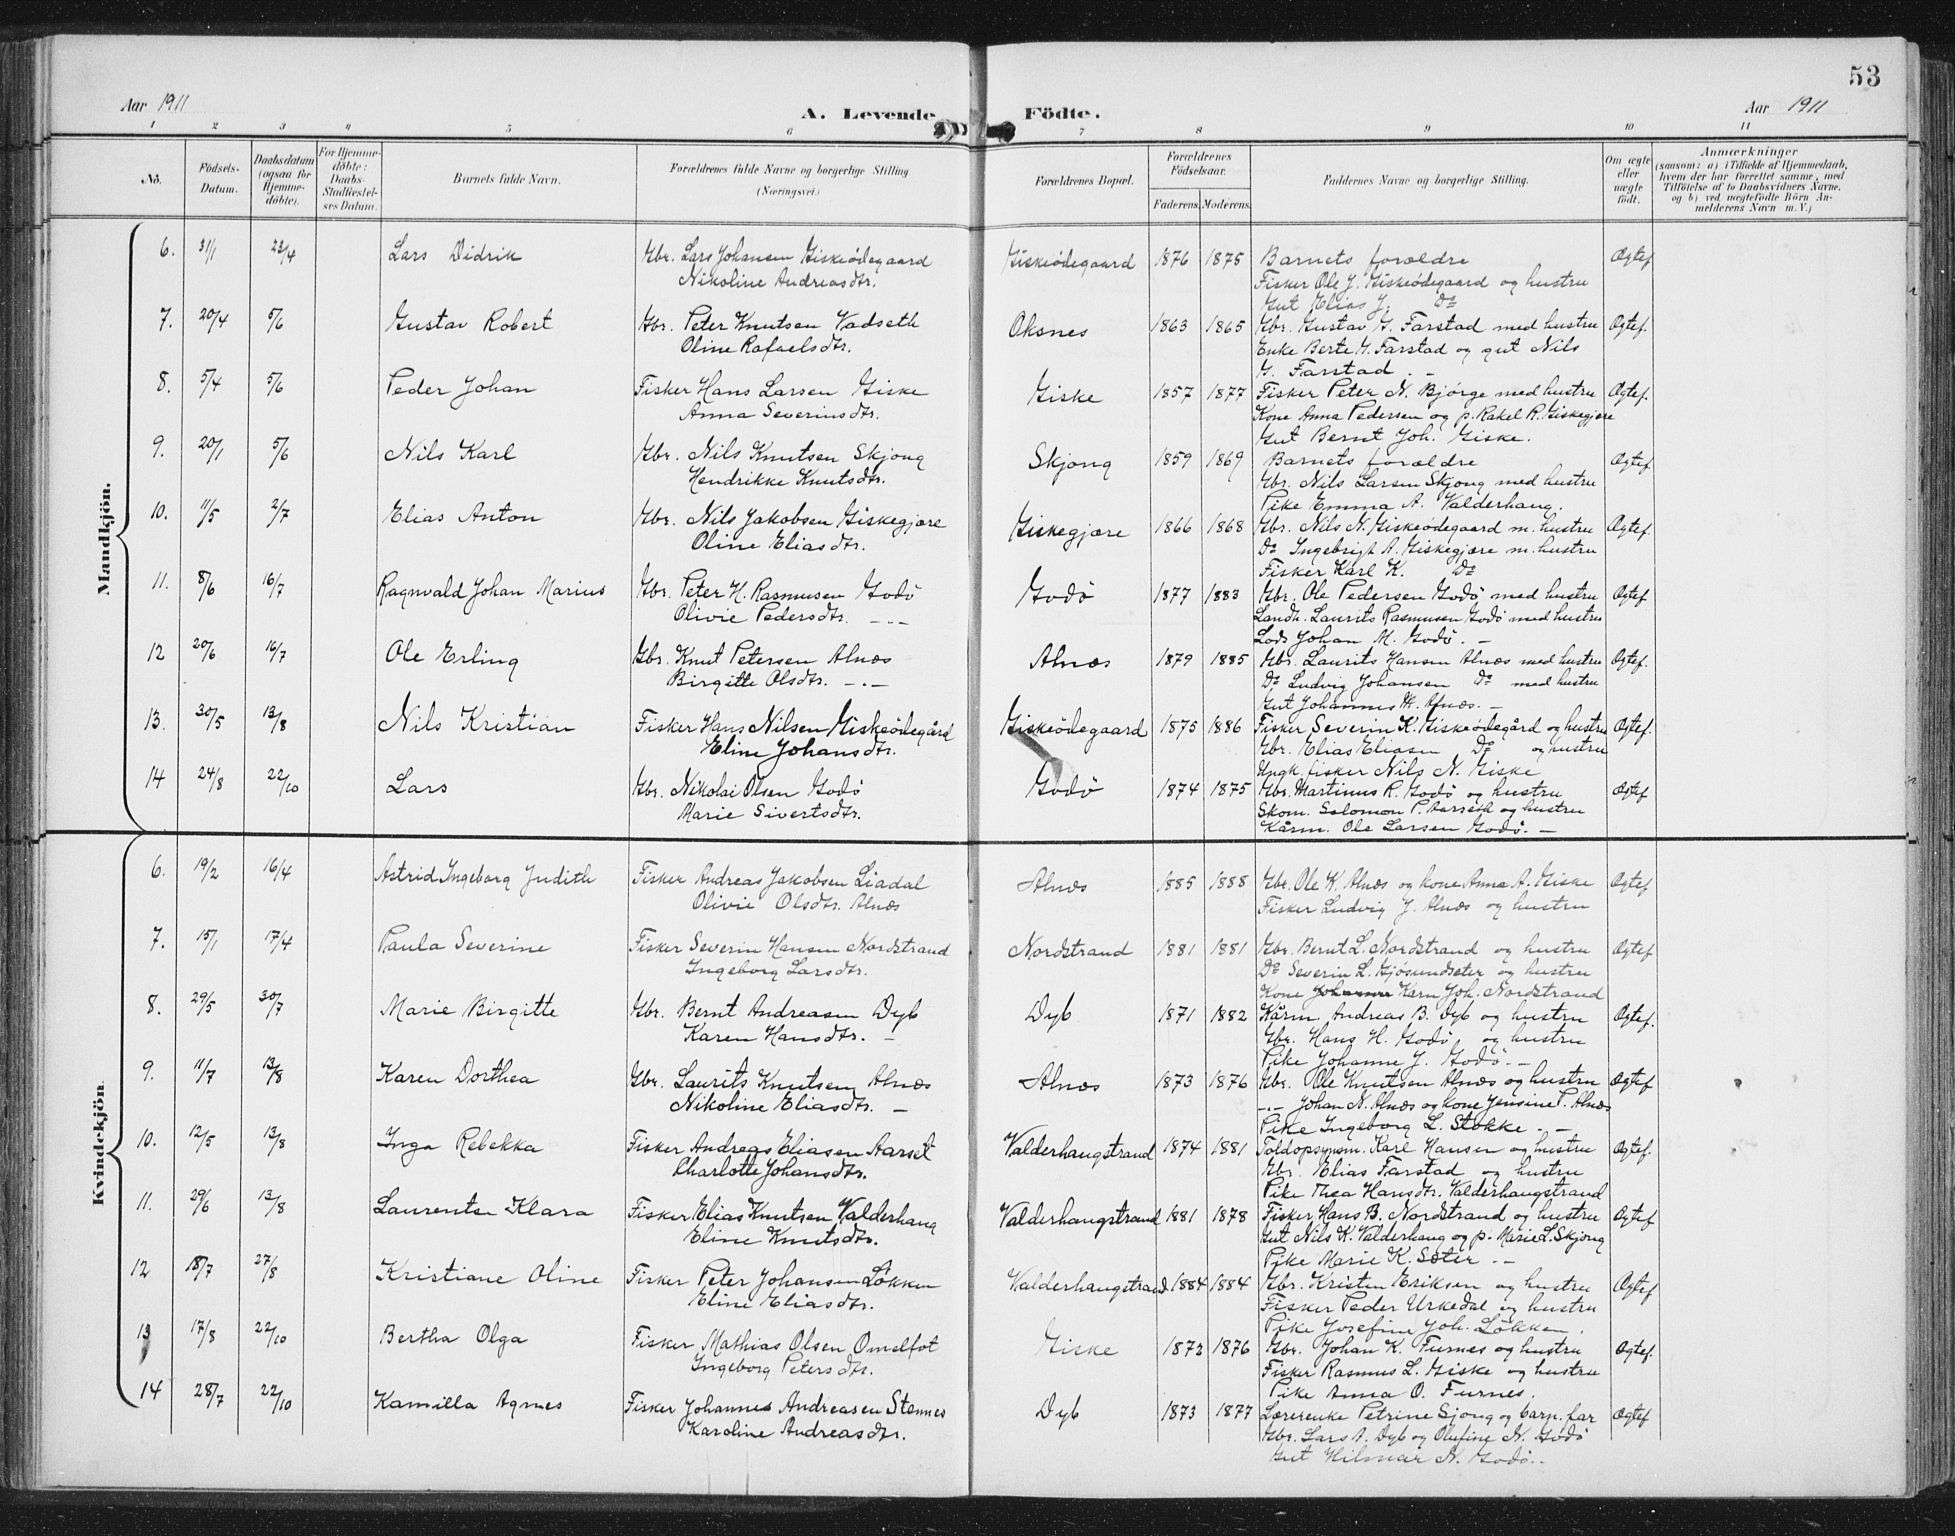 53
Aar 1911
A. Levende Födte.
Aar 1911
1 2 3 4 5 6 7 8 9 10 11
No.
Födsels-Datum.
Daabsdatum (ogsaa for Hjemme-döbte).
For Hjemme-döbte: Daabs-Stadfæstel-ses Datum.
Barnets fulde Navn.
Forældrenes fulde Navne og borgerlige Stilling (Næringsvei.)
Forældrenes Bopæl.
Forældrenes Födselsaar.
Faderens. Moderens.
Faddernes Navne og borgerlige Stilling.
Om ægte eller uægte födt.
Anmærkninger
(saasom: a) i Tilfælde af Hjemmedaab, hvem der har forrettet samme, med Tilföielse af to Daabsvidners Navne, og b) ved uægtefödte Börn An-melderens Navn m. V.)
Mandkjön.
6. 31/1 23/4 Lars Didrik Gbr. Lars Johansen Giskeødegaard Giskeødegaard 1876 1875 Barnets forældre Ægtef
Nikoline Andreasdtr. Fisker Ole J. Giskeødegaard og hustru
Gut Elias J. Do
7. 20/4 5/6 Gustav Robert Gbr. Peter Knutsen Vadseth Oksnes 1863 1865 Gbr. Gustav G. Farstad med hustru Ægtef.
Oline Rafaelsdtr. Enke Berte G. Farstad og gut Nils
G. Farstad. -
8. 5/4 5/6 Peder Johan Fisker Hans Larsen Giske Giske 1857 1877 Fisker Peter N. Bjørge med hustru Ægtef.
Anna Severinsdtr. Kone Anna Pedersen og p. Rakel R. Giskegjære
Gut Bernt Joh. Giske.
9. 20/1 5/6 Nils Karl Gbr. Nils Knutsen Skjong Skjong 1859 1869 Barnets forældre Ægtef
Hendrikke Knutsdtr. Gbr. Nils Larsen Skjong med hustru
Pike Emma A. Valderhaug.
10. 11/5 2/7 Elias Anton Gbr. Nils Jakobsen Giskegjære Giskegjære 1866 1868 Gbr. Nils N. Giskeødegaard m. hustru Ægtef.
Oline Eliasdtr. Do Ingebrigt A. Giskegjære m. hustru
Fisker Karl K. Do
11. 8/6 16/7 Ragnvald Johan Marius Gbr. Peter H. Rasmusen Godø Godø 1877 1883 Gbr. Ole Pedersen Godø med hustru Ægtef
Olivie Pedersdtr. -.- Landh. Laurits Rasmusen Godø med hustru
Lods Johan M. Godø. -
12 20/6 16/7 Ole Erling Gbr. Knut Petersen Alnæs Alnæs 1879 1885 Gbr. Laurits Hansen Alnæs med hustru Ægtef.
Birgitte Olsdtr. -.- Do Ludvig Johansen Do med hustru
Gut Johannes M. Alnæs. -
13. 30/5 13/8 Nils Kristian Fisker Hans Nilsen Giskeødegård Giskeødegaard 1875 1886 Fisker Severin K. Giskeødegård og hustru Ægtef.
Eline Johansdtr. Gbr. Elias Eliasen Do og hustru
Ungk. fisker Nils N. Giske
14 24/8 22/10 Lars Gbr. Nikolai Olsen Godø Godø 1874 1875 Gbr. Martinus R. Godø og hustru Ægtef
Marie Sivertsdtr. Skom. Solomon P. Aarseth og hustru
Kårm. Ole Larsen Godø. -
Kvindekjön.
6. 19/2 16/4 Astrid Ingeborg Judith Fisker Andreas Jakobsen Liadal Alnæs 1885 1888 Gbr. Ole K. Alnæs og kone Anna A. Giske Ægtef
Olivie Olsdtr. Alnæs Fisker Ludvig J. Alnæs og hustru
7. 15/1 17/4 Paula Severine Fisker Severin Hansen Nordstrand Nordstrand 1881 1881 Gbr. Bernt L. Nordstrand og hustru Ægtef
Ingeborg Larsdtr. Do Severin L. Gjøsundseter og hustru
Kone Karn Joh. Nordstrand
8. 29/5 30/7 Marie Birgitte Gbr. Bernt Andreasen Dyb Dyb 1871 1882 Kårm. Andreas B. Dyb og hustru Ægtef.
Karen Hansdtr. - Gbr. Hans H. Godø og hustru
Pike Johanne J. Godø. -
9. 11/7 13/8 Karen Dorthea Gbr. Laurits Knutsen Alnæs Alnæs 1873 1876 Gbr. Ole Knutsen Alnæs og hustru Ægtef
Nikoline Eliasdtr. - -.- Johan N. Alnæs og kone Jensine P. Alnæs
Pike Ingeborg L. Stokke. -
10. 12/5 13/8 Inga Rebekka Fisker Andreas Eliasen Aarset Valderhaugstrand 1874 1881 Toldopsynsm. Karl Hansen og hustru Ægtef.
Charlotte Johansdtr. Gbr. Elias Farstad og hustru
Pike Thea Hansdtr. Valderhaugstrand
11. 29/6 13/8 Laurentse Klara Fisker Elias Knutsen Valderhaug Valderhaugstrand 1881 1878 Fisker Hans B. Nordstrand og hustru Ægtef
Eline Knutsdtr. Gut Nils K. Valderhaug og p. Marie L. Skjong
Pike Marie K. Sæter. -
12 18/7 27/8 Kristiane Oline Fisker Peter Johansen Løkken Valderhaugstrand 1884 1884 Gbr. Kristen Eriksen og hustru Ægtef
Eline Eliasdtr. Fisker Peder Urkedal og hustru
Pike Josefine Joh. Løkken.
13 17/8 22/10 Bertha Olga Fisker Mathias Olsen Omelfot Giske 1872 1876 Gbr. Johan K. Furnes og hustru Ægtef.
Ingeborg Petersdtr. Fisker Rasmus L. Giske og hustru
Pike Anna O. Furnes.
14 28/7 22/10 Kamilla Agnes Fisker Johannes Andreasen Stennes Dyb 1873 1877 Lærerenke Petrine Sjong og barn. far Ægtef
Karoline Andreasdtr. Gbr. Lars A. Dyb og Olufine N. Godø
Gut Hilmar N. Godø..